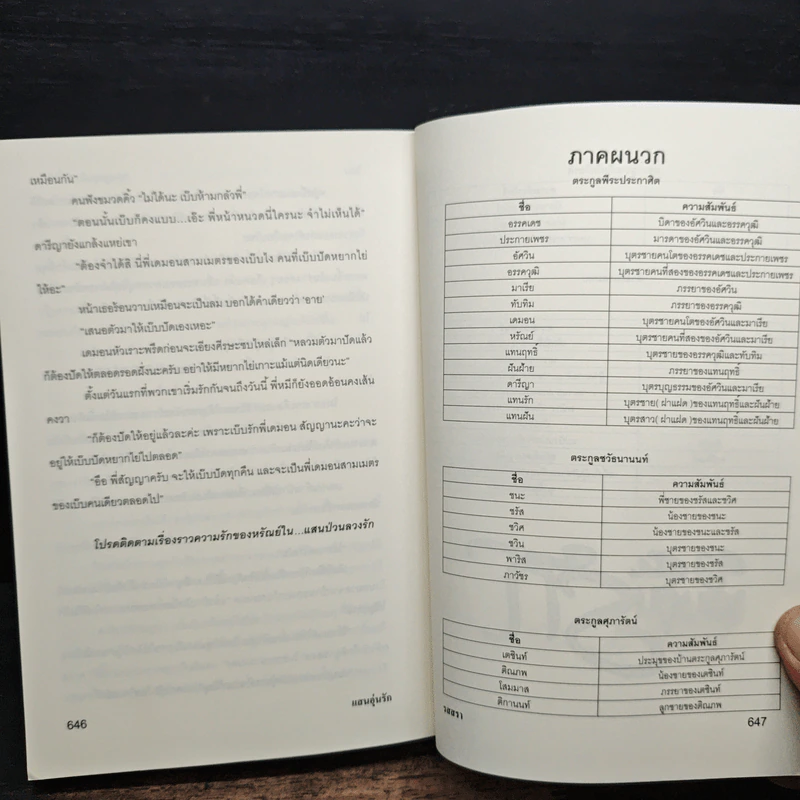 เหมือนกัน"
คนฟังขมวดคิ้ว "ไม่ได้นะ เบ๊บห้ามกลัวพี่"
"ตอนนั้นเบ๊บก็คงแบบ...เอ๊ะ พี่หน้าหนวดนี่ใครนะ จำไม่เห็นได้"
ดารีญายังแกล้งแหย่เขา
"ต้องจำได้สิ นี่พี่เดมอนสามเมตรของเบ๊บไง คนที่เบ๊บปัดหยากไย่
ให้อะ"
หน้าเธอร้อนวาบเหมือนจะเป็นลม บอกได้คำเดียวว่า 'อาย'
"เสนอตัวมาให้เบ๊บปัดเองเหอะ"
เดมอนหัวเราะพรืดก่อนจะเอียงศีรษะซบไหล่เล็ก "หลวมตัวมาปัดแล้ว
ก็ต้องปัดให้ตลอดรอดฝั่งนะครับ อย่าให้มีหยากไย่เกาะแม้แต่นิดเดียวนะ"
ตั้งแต่วันแรกที่พวกเขาเริ่มรักกันจนถึงวันนี้ พี่หมีก็ยังออดอ้อนคงเส้น
คงวา
"ก็ต้องปัดให้อยู่แล้วละค่ะ เพราะเบ๊บรักพี่เดมอน สัญญานะคะว่าจะ
อยู่ให้เบ๊บปัดหยากไย่ไปตลอด"
"อือ พี่สัญญาครับ จะให้เบ๊บปัดทุกคืน และจะเป็นพี่เดมอนสามเมตร
ของเบ๊บคนเดียวตลอดไป"
โปรดติดตามเรื่องราวความรักของหรัณย์ใน...แสนป่วนลวงรัก
แสนอุ่นรัก
646
ภาคผนวก
ตระกูลพีระประกาศิต
ชื่อ ความสัมพันธ์
อรรคเดช บิดาของอัศวินและอรรควุฒิ
ประกายเพชร มารดาของอัศวินและอรรควุฒิ
อัศวิน บุตรชายคนโตของอรรคเดชและประกายเพชร
อรรควุฒิ บุตรชายคนที่สองของอรรคเดชและประกายเพชร
มาเรีย ภรรยาของอัศวิน
ทับทิม ภรรยาของอรรควุฒิ
เดมอน บุตรชายคนโตของอัศวินและมาเรีย
หรัณย์ บุตรชายคนที่สองของอัศวินและมาเรีย
แทนฤทธิ์ บุตรชายของอรรควุฒิและทับทิม
ฝันฝ้าย ภรรยาของแทนฤทธิ์
ดารีญา บุตรบุญธรรมของอัศวินและมาเรีย
แทนรัก บุตรชาย( ฝาแฝด ) ของแทนฤทธิ์และฝันฝ้าย
แทนฝัน บุตรสาว( ฝาแฝด ) ของแทนฤทธิ์และฝันฝ้าย
ตระกูลชวัธนานนท์
ชื่อ ความสัมพันธ์
ชนะ พี่ชายของชรัสและชวิศ
ชรัส น้องชายของชนะ
ชวิศ น้องชายของชนะและชรัส
ชวิน บุตรชายของชนะ
พาริส บุตรชายของชรัส
ภาวัชร บุตรชายของชวิศ
ตระกูลศุภารัตน์
ชื่อ ความสัมพันธ์
เตชินท์ ประมุขของบ้านตระกูลศุภารัตน์
ติณภพ น้องชายของเตชินท์
โสมมาส ภรรยาของเตชินท์
ติกานนท์ ลูกชายของติณภพ
รสสรา
647